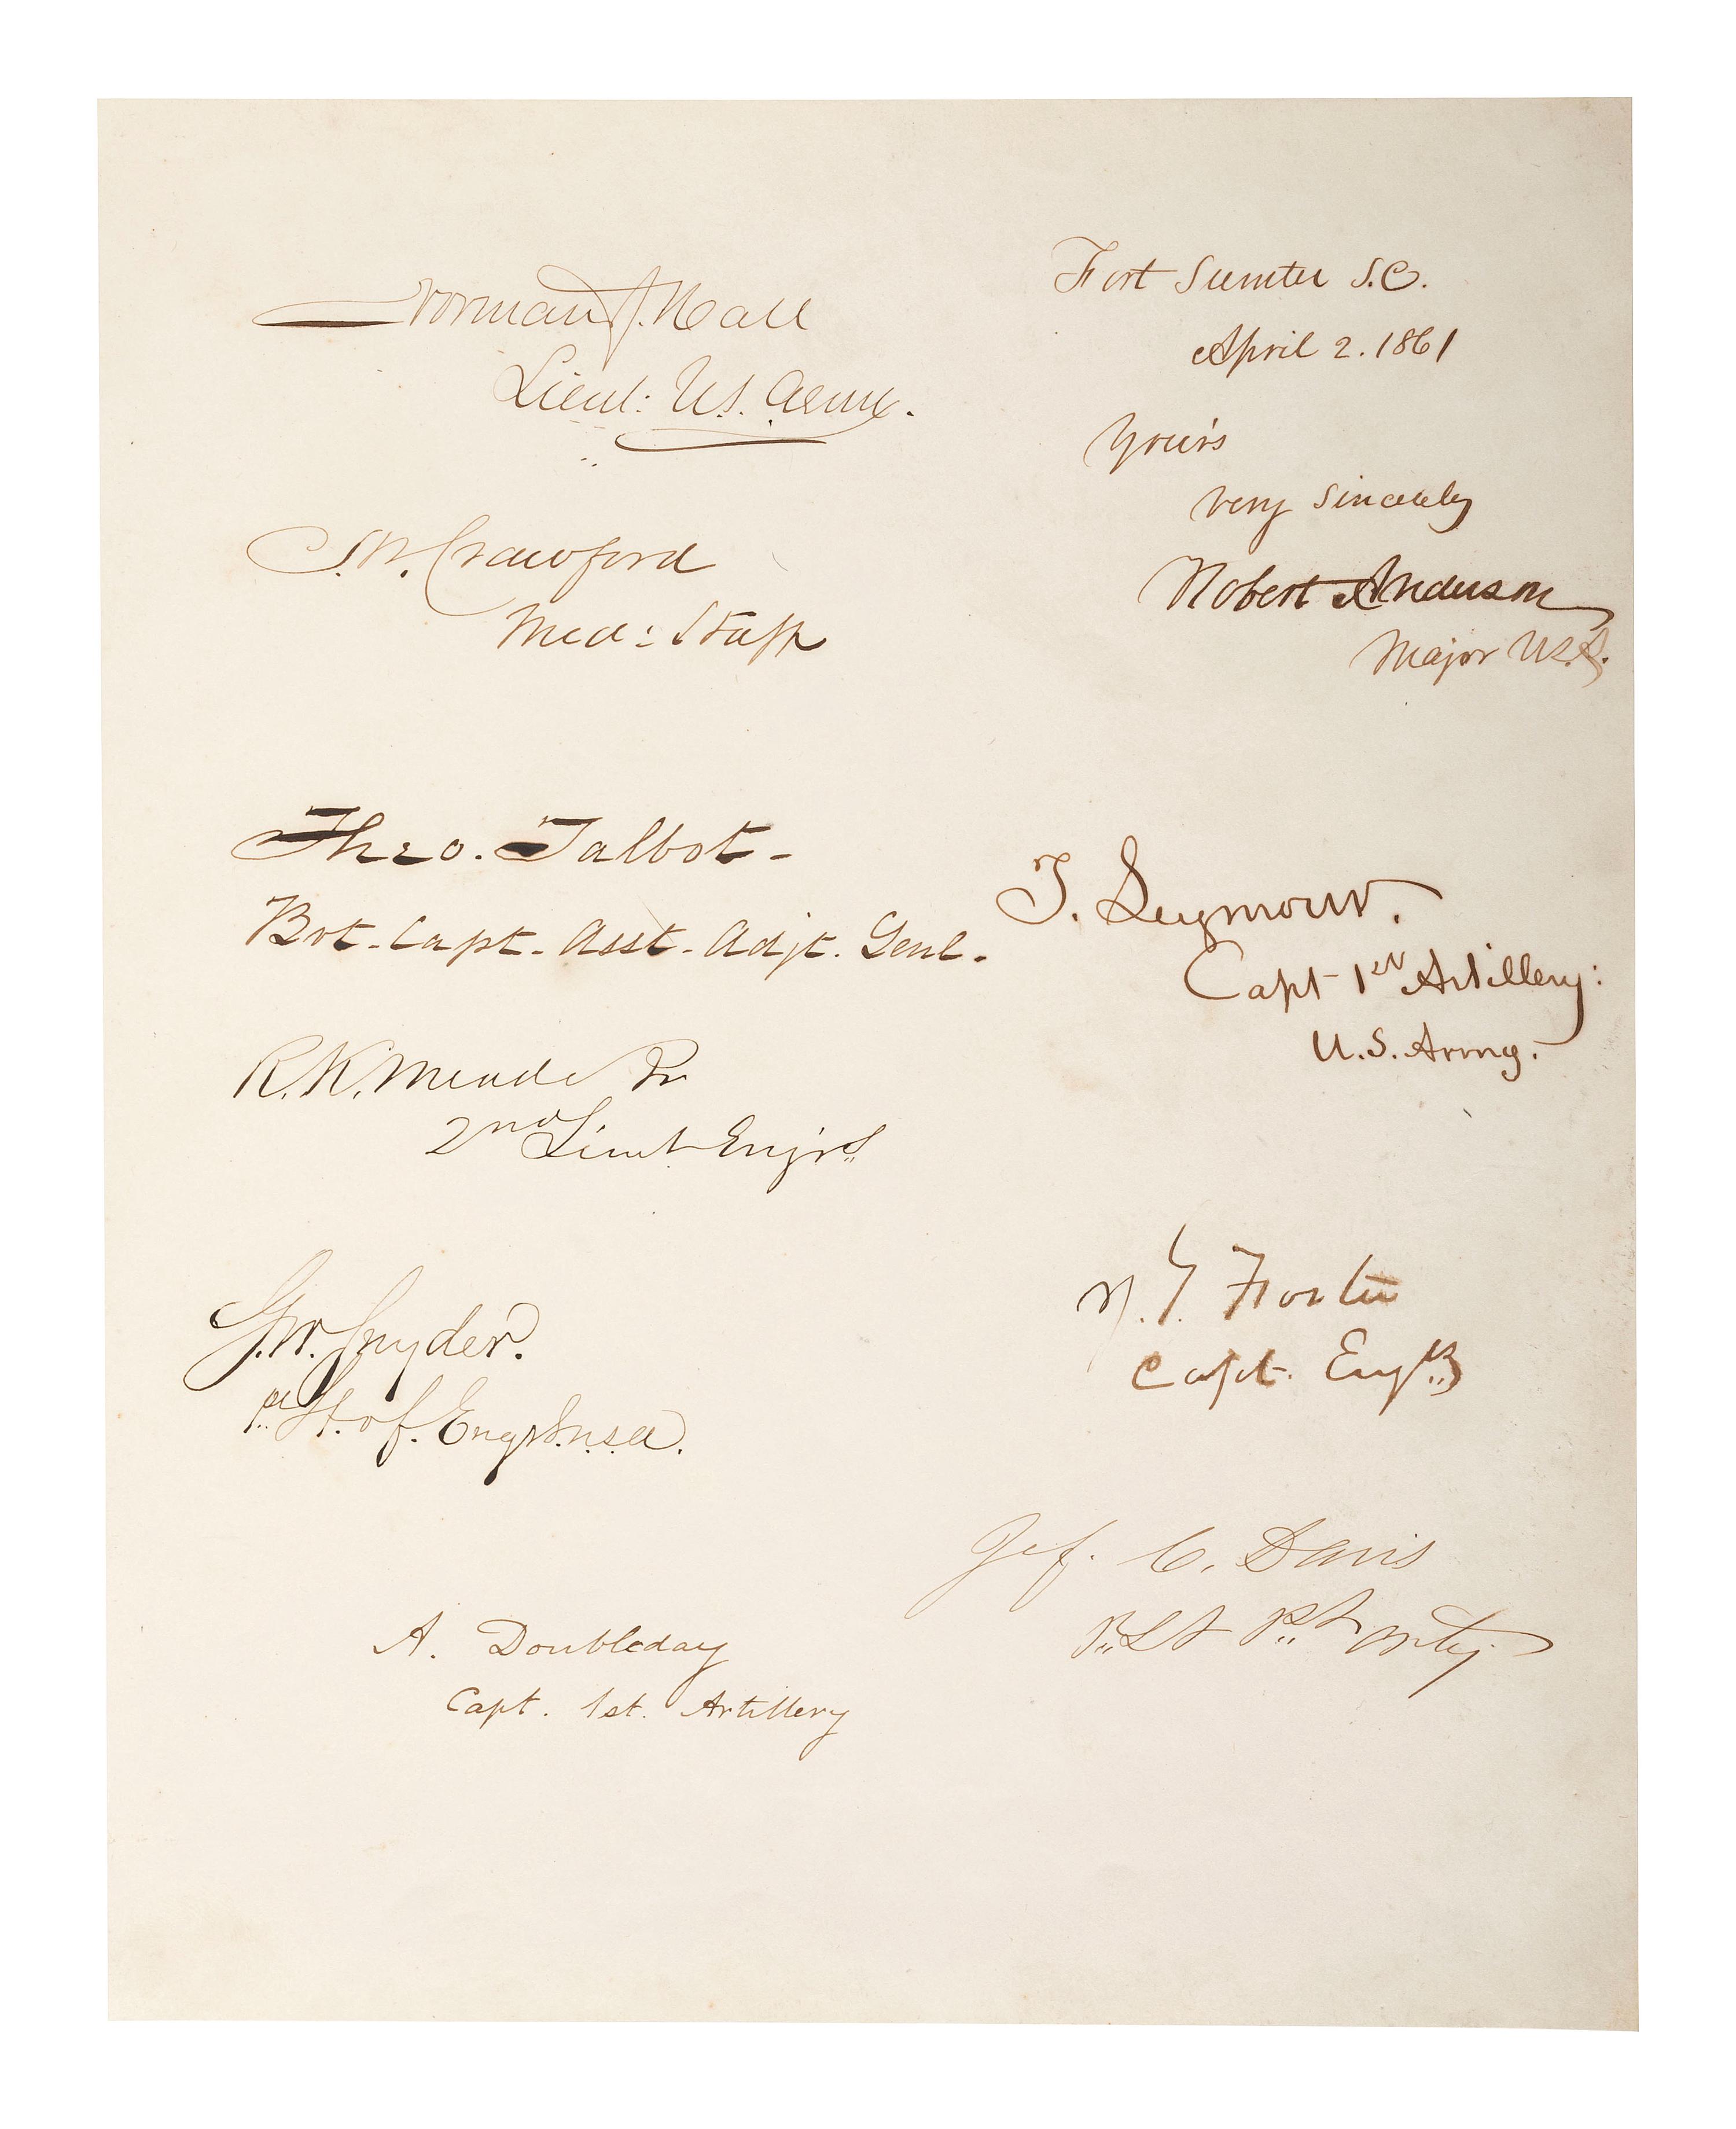 Norman J. Hall
Lieut: U.S. Army.
S.W. Crawford
Med: Staff
Theo. Talbot-
Bvt. Capt. Asst. Adjt. Genl.
R.K. Meade Jr
2nd Lieut Engrs
G.W. Snyder.
1st Lt. of Engrs. U.S.A.
A. Doubleday
Capt. 1st. Artillery
Fort Sumter S.C.
April 2. 1861
Your's
very sincerely
Robert Anderson
Major U.S.A.
T. Seymour.
Capt 1st Artillery:
U.S. Army.
J. G. Foster
Capt. Engrs
Jef. C. Davis
1st Lt 1st Arty